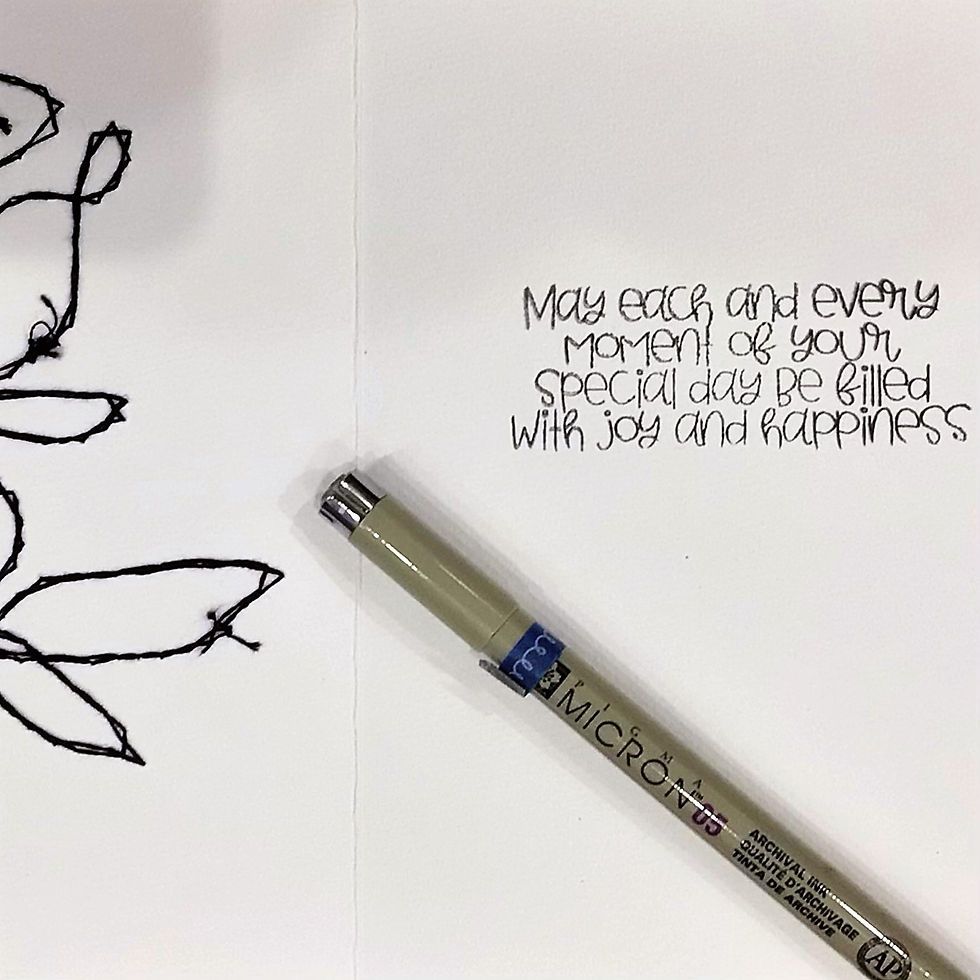 May each and every
moment of your
special day be filled
with joy and happiness
PIGMA
MICRON™ 05
ARCHIVAL INK
QUALITÉ D'ARCHIVAGE
TINTA DE ARCHIVE
AP